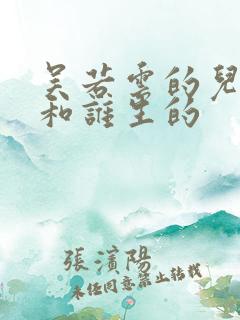 吴若雲的兒
和誰生的
張濱陽
未经同意禁止转载